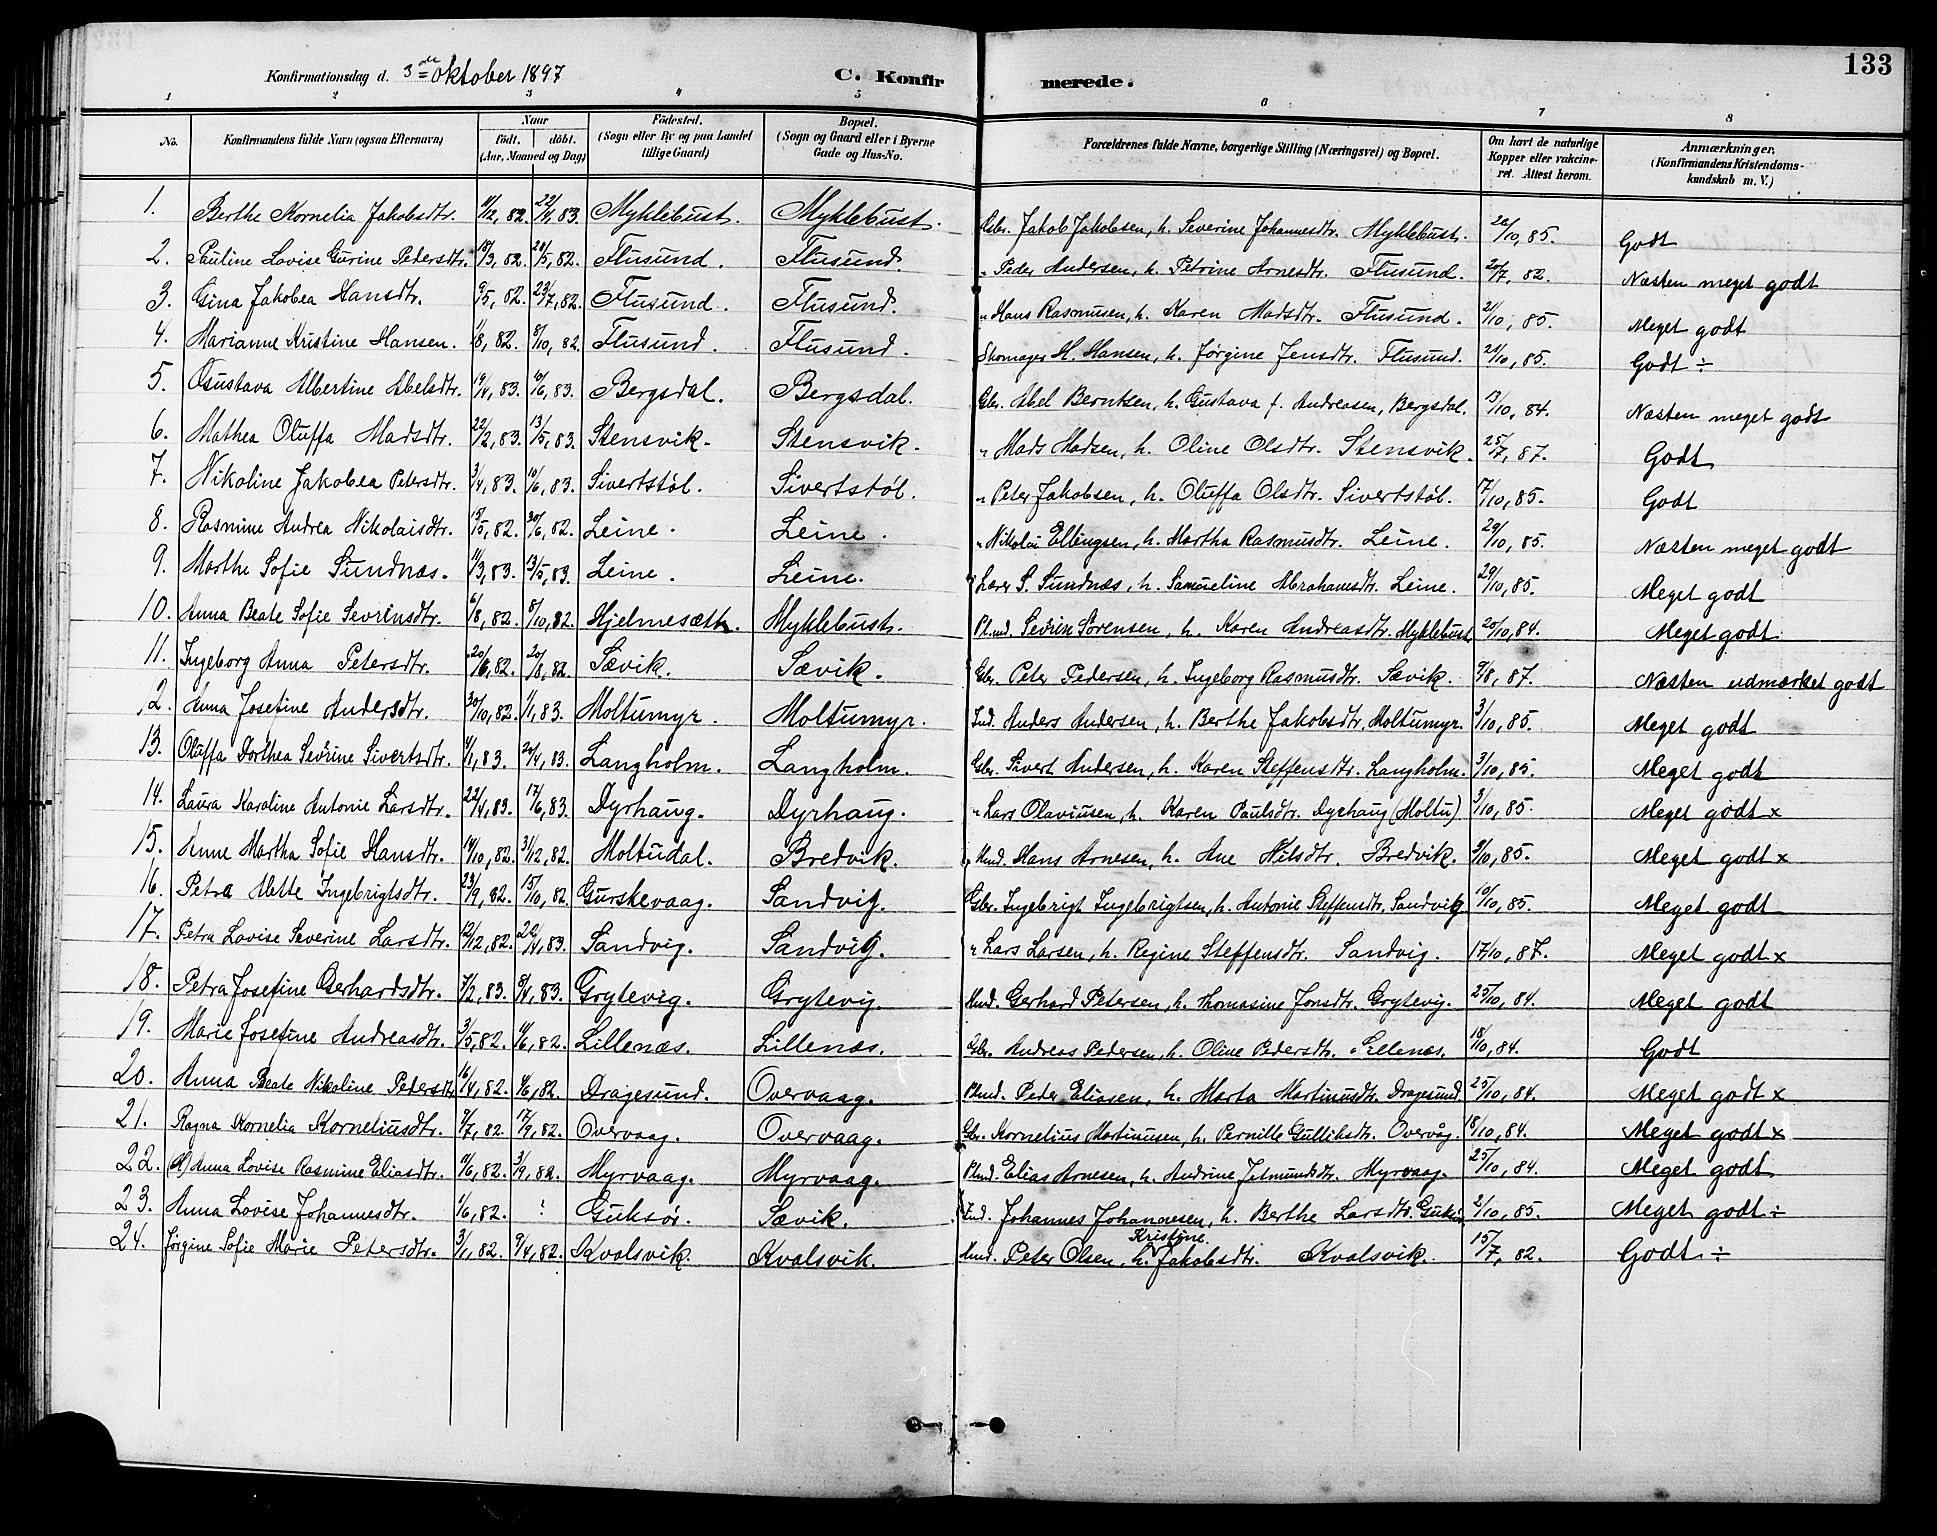 133
Konfirmationsdag d. 3de Oktober 1897 C. Konfirmerede.
1 2 3 4 5 6 7 8
No. Konfirmandens fulde Navn (ogsaa Efternavn) Naar født, døbt. (Aar, Maaned og Dag) Fødested. (Sogn eller By og paa Landet tillige Gaard) Bopæl. (Sogn og Gaard eller i Byerne Gade og Hus-No. Forældrenes fulde Navne, borgerlige Stilling (Næringsvei) og Bopæl. Om havt de naturlige Kopper eller vakcineret. Attest herom. Anmærkninger. (Konfirmandens Kristendomskundskab m. V.)
1. Berthe Kornelia Jakobsdtr. 11/12, 82. 22/4, 83. Myklebust. Myklebust. Gbr. Jakob Jakobsen, h. Severine Johannesdtr. Myklebust. 20/10, 85. Godt
2. Pauline Lovise Gurine Pedersdtr. 18/3, 82. 28/5, 82. Flusund. Flusund. " Peder Andersen, h. Petrine Arnesdtr. Flusund. 20/7, 82. Næsten meget godt
3. Gina Jakobea Hansdtr. 9/5, 82. 23/7, 82. Flusund. Flusund. " Hans Rasmusen, h. Karen Madsdtr. Flusund. 21/10, 85. Meget godt
4. Marianne Kristine Hansen. 1/8, 82. 8/10, 82. Flusund. Flusund. Skomager H. Hansen, h. Jørgine Jensdtr. Flusund. 21/10, 85. Godt ÷
5. Gustava Albertine Abelsdtr. 19/4, 83. 10/6, 83. Bergsdal. Bergsdal. Gbr. Abel Berntsen, h. Gustava f. Andreasen, Bergsdal. 13/10, 84. Næsten meget godt
6. Mathea Oluffa Madsdtr. 22/2, 83. 13/5, 83. Stensvik. Stensvik. " Mads Madsen, h. Oline Olsdtr. Stensvik. 25/7, 87. Godt
7. Nikoline Jakobea Petersdtr. 3/4, 83. 10/6, 83. Sivertstøl. Sivertstøl. " Peter Jakobsen, h. Oluffa Olsdtr. Sivertstøl. 17/10, 85. Godt
8. Rasmine Andrea Nikolaisdtr. 15/5, 82. 30/6, 82. Leine. Leine. " Nikolai Ellingsen, h. Martha Rasmusdtr. Leine. 29/10, 85. Næsten meget godt
9. Marthe Sofie Sundnæs. 11/3, 83. 13/5, 83. Leine. Leine. Lærer S. Sundnæs, h. Samueline Abrahamsdtr. Leine. 29/10, 85. Meget godt
10. Anna Beate Sofie Sevrinsdtr. 6/8, 82. 8/10, 82. Hjelmesæth. Myklebust. Sevrin Sørensen, h. Karen Andreasdtr. Myklebust 20/10, 84. Meget godt
11. Ingeborg Anna Petersdtr. 20/6, 82. 20/8, 82. Sævik. Sævik. Gbr. Peter Pedersen, h. Ingeborg Rasmusdtr. Sævik. 9/8, 87. Næsten udmærket godt
12. Anna Josefine Andersdtr. 30/10, 82. 1/1, 83. Moltumyr. Moltumyr. Ind. Anders Andersen, h. Berthe Jakobsdtr. Moltumyr. 3/10, 85. Meget godt
13. Oluffa Dorthea Sevrine Sivertsdtr. 4/1, 83. 22/4, 83. Langholm. Langholm. Gbr. Sivert Andersen, h. Karen Steffensdtr. Langholm. 3/10, 85. Meget godt
14. Laura Karoline Antonie Larsdtr. 22/4, 83. 17/6, 83. Dyrhaug. Dyrhaug. " Lars Olaviusen, h. Karen Paulsdtr. Dyrhaug (Moltu) 3/10, 85. Meget godt x
15. Anne Martha Sofie Hansdtr. 14/10, 82. 31/12, 82. Moltudal. Bredvik. Hans Arnesen, h. Ane Nilsdtr. Bredvik. 3/10, 85. Meget godt x
16. Petra Mette Ingebrigtsdtr. 23/9, 82. 15/10, 82. Gurskevaag. Sandvig. Gbr. Ingebrigt Ingebrigtsen, h. Antonie Steffensdtr. Sandvig 10/10, 85. Meget godt
17. Petra Lovise Severine Larsdtr. 12/12, 82. 22/4, 83. Sandvig. Sandvig. " Lars Larsen, h. Regine Steffensdtr. Sandvig. 17/10, 87. Meget godt x
18. Petra Josefine Gerhardsdtr. 7/2, 83. 8/4, 83. Grytevig. Grytevig. Gerhard Petersen, h. Thomasine Jonsdtr. Grytevig. 25/10, 84. Meget godt
19. Marie Josefine Andreasdtr. 3/5, 82. 4/6, 82. Lillenæs. Lillenæs. Gbr. Andreas Pedersen, h. Oline Pedersdtr. Lillenæs. 18/10, 84. Godt
20. Anna Beate Nikoline Pedersdtr 16/4, 82. 4/6, 82. Dragesund. Overvaag. Peder Eliasen, h. Marta Martinusdtr. Dragesund 25/10, 84. Meget godt x
21. Ragna Kornelia Korneliusdtr. 7/7, 82. 17/9, 82. Overvaag. Overvaag. Gbr. Kornelius Martinusen, h. Pernille Gulliksdtr. Overvåg. 18/10, 84. Meget godt x
22. Anna Lovise Rasmine Eliasdtr. 11/6, 82. 3/9, 82. Myrvaag. Myrvaag. Elias Arnesen, h. Andrine Jetmundsdtr. Myrvaag. 25/10, 84. Meget godt
23. Anna Lovise Johannesdtr. 1/6, 82. Guksør. Sævik. Ind. Johannes Johannesen, h. Berthe Larsdtr. Guksør 2/10, 85. Meget godt ÷
24. Jørgine Sofie Marie Petersdtr. 3/1, 82. 9/4, 82. Kvalsvik. Kvalsvik. Peter Olsen, h. Kristine Jakobsdtr. Kvalsvik. 15/7, 82. Godt ÷